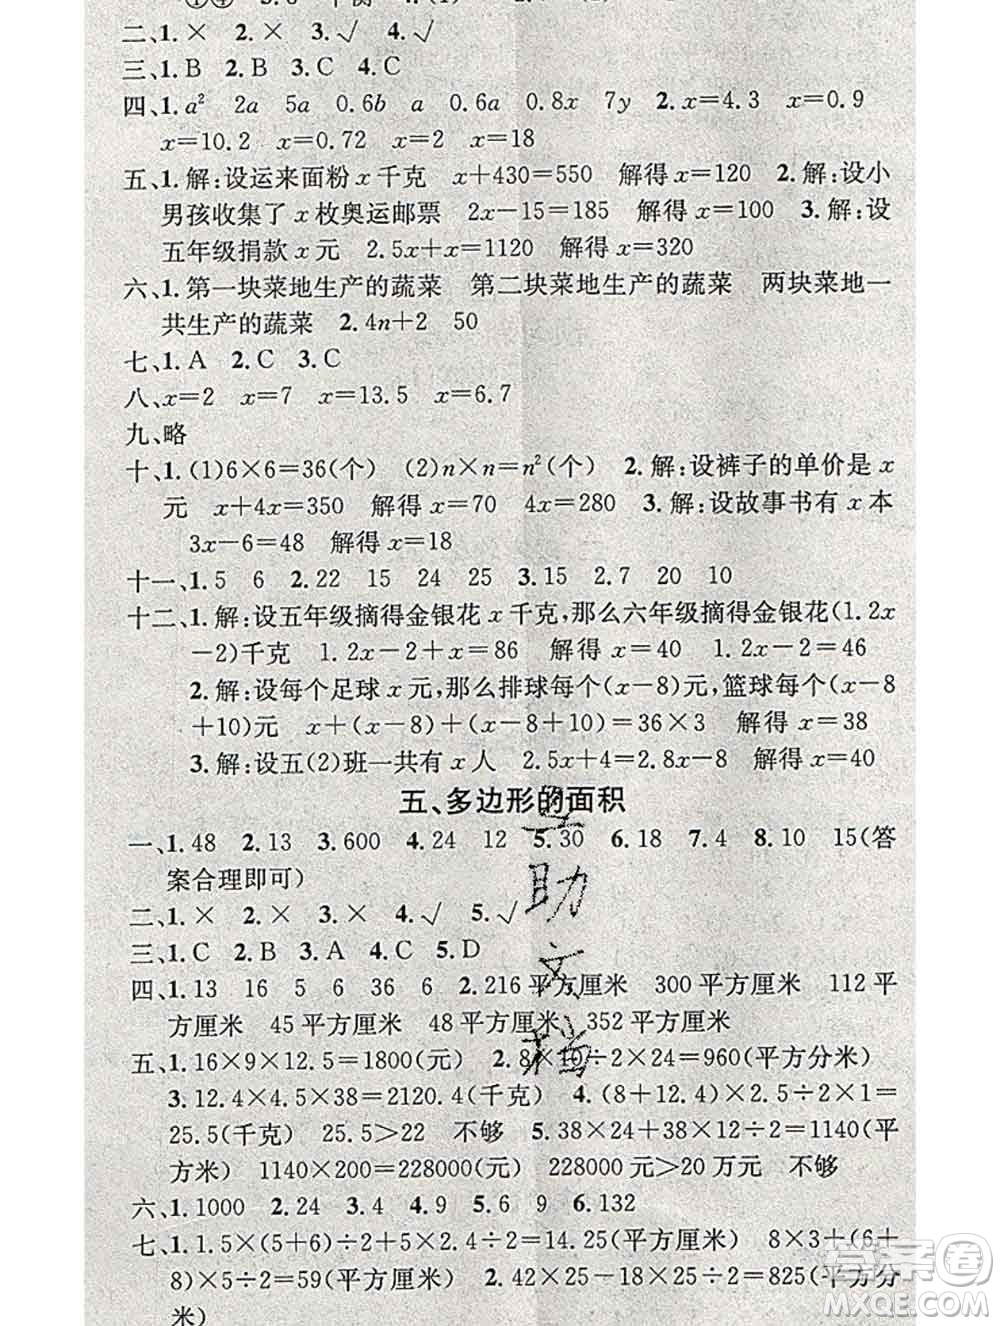 二、1.× 2.× 3.√ 4.√
三、1.B 2.B 3.C 4.C
四、1.a² 2a 5a 0.6b a 0.6a 0.8x 7y 2.x=4.3 x=0.9
x=10.2 x=0.72 x=2 x=18
五、1.解:设运来面粉 x 千克 x+430=550 解得 x=120 2.解:设小
男孩收集了 x 枚奥运邮票 2x-15=185 解得 x=100 3.解:设
五年级捐款 x 元 2.5x+x=1120 解得 x=320
六、1.第一块菜地生产的蔬菜 第二块菜地生产的蔬菜 两块菜地一
共生产的蔬菜 2.4n+2 50
七、1.A 2.C 3.C
八、x=2 x=7 x=13.5 x=6.7
九、略
十、1.(1)6×6=36(个) (2)n×n=n²(个) 2.解:设裤子的单价是 x
元 x+4x=350 解得 x=70 4x=280 3.解:设故事书有 x 本
3x-6=48 解得 x=18
十一、1.5 6 2.22 15 24 25 3.15 2.7 20 10
十二、1.解:设五年级摘得金银花 x 千克,那么六年级摘得金银花(1.2x
-2)千克 1.2x-2+x=86 解得 x=40 1.2x-2=46
2.解:设每个足球 x 元,那么排球每个(x-8)元,篮球每个(x-8
+10)元 x+(x-8)+(x-8+10)=36×3 解得 x=38
3.解:设五(2)班一共有 x 人 2.5x+4=2.8x-8 解得 x=40
五、多边形的面积
一、1.48 2.13 3.600 4.24 12 5.30 6.18 7.4 8.10 15(答
案合理即可)
二、1.× 2.× 3.× 4.√ 5.√
三、1.C 2.B 3.A 4.C 5.D
四、1.13 16 5 6 36 6 2.216 平方厘米 300 平方厘米 112 平
方厘米 45 平方厘米 48 平方厘米 352 平方厘米
五、1.16×9×12.5=1800(元) 2.8×10÷2×24=960(平方分米)
3.12.4×4.5×38=2120.4(千克) 4.(8+12.4)×2.5÷2×1=
25.5(千克) 25.5>22 不够 5.38×24+38×12÷2=1140(平
方米) 1140×200=228000(元) 228000元>20万元 不够
六、1.1000 2.24 3.4 4.9 5.6 9 6.132
七、1.1.5×(5+6)÷2+5×2.4÷2=14.25(平方厘米) 8×3+(6+
8)×(8-3)÷2=59(平方厘米) 2.42×25-18×25÷2=825(平方分
米)
答案卷
MXQE.COM